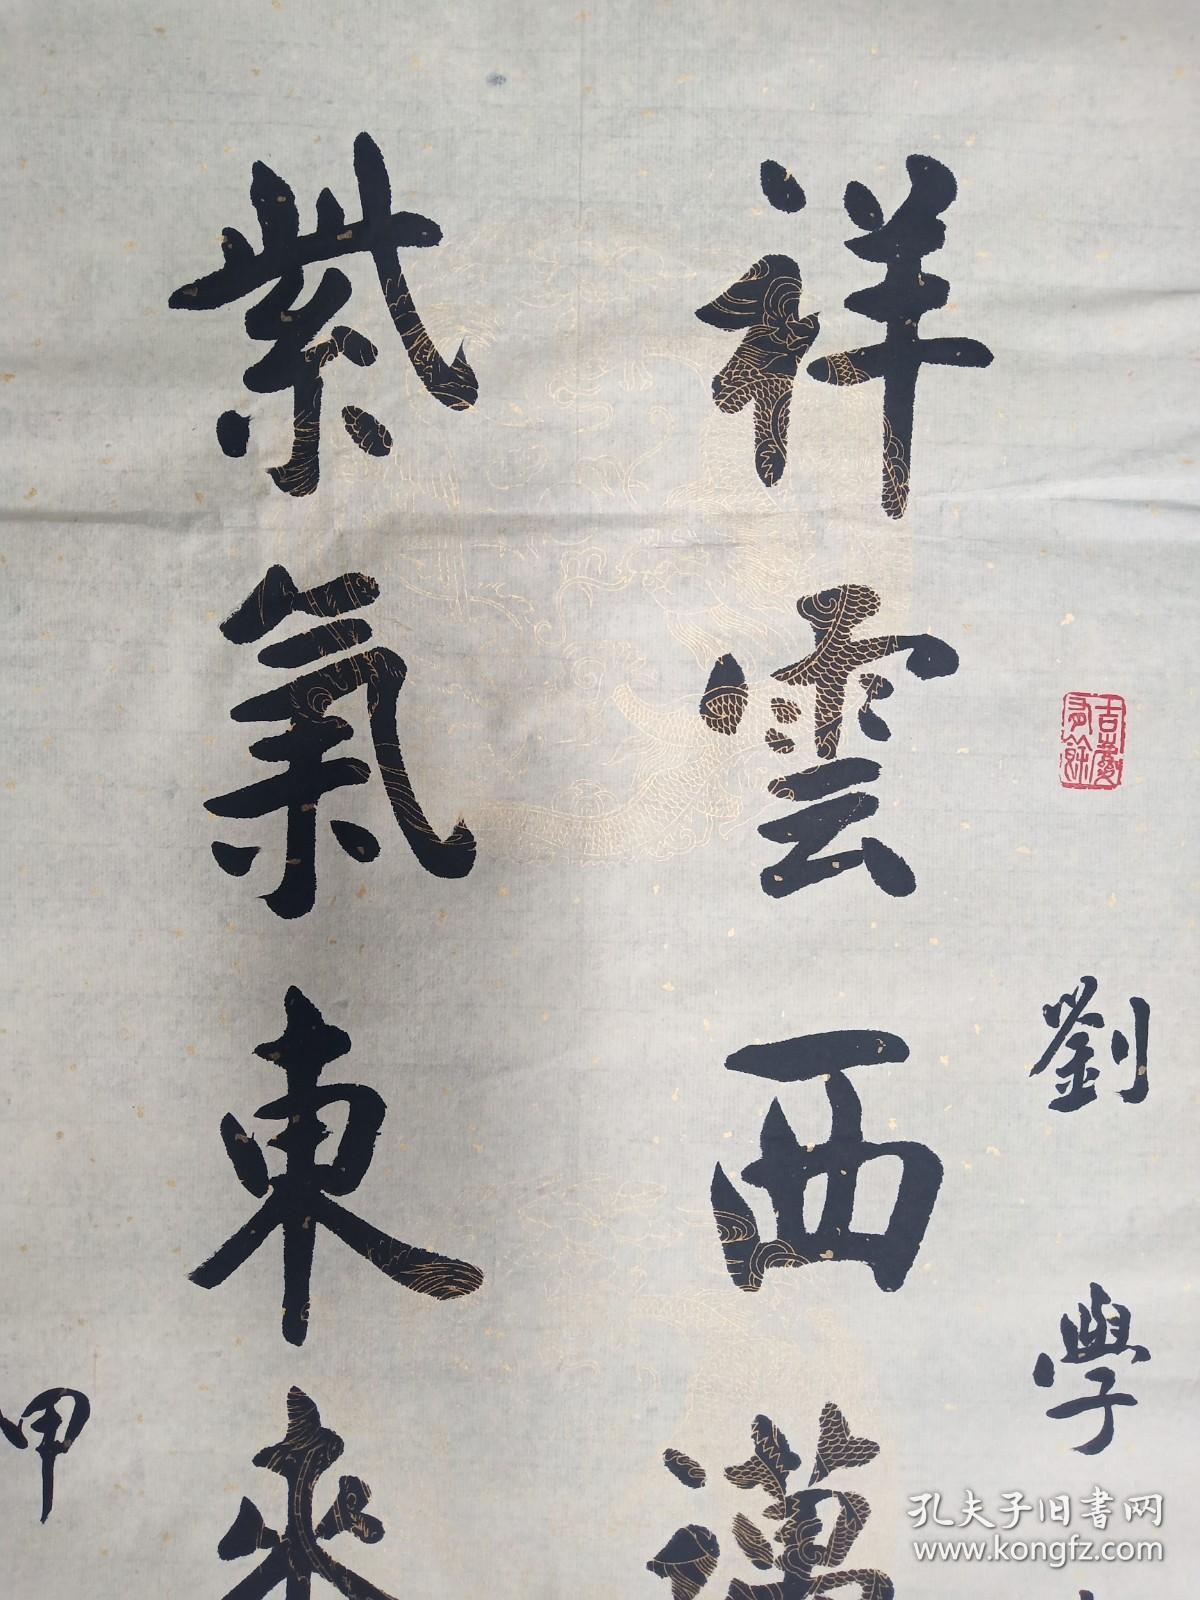 劉學
祥雲西滿
紫氣東來
甲
吉慶有餘
孔夫子旧书网
www.kongfz.com